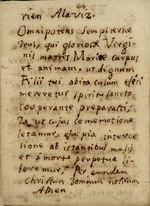 rien Alaviz.
Omnipotens Sempiterne
Deus, qui gloriosæ Virgi
nis matris Mariæ corpus
et animam, ut dignum
Filii tui abitaculum effici
mereretur spiritu sancto
cooperante preparasti,
Da ut cujus comemoratione
letamur, ejus pia interce
sione ab instantibus malis
et a morte perpetua li
beremur. Per eundem
Christum Dominum nostrum
Amen